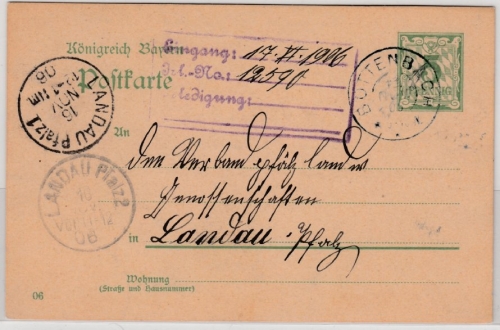 Königreich Bayern
Postkarte
Eingang: 17. XI 1906
J.-No.: 12590
ledigung:
LANDAU Pfalz 1
16
NOV
06
BUTTENBACH
PFENNIG
An
den Verband pfälz. landw
Genossenschaften
in Landau Pfalz
LANDAU Pfalz 2
06
Wohnung
(Straße und Hausnummer)
06